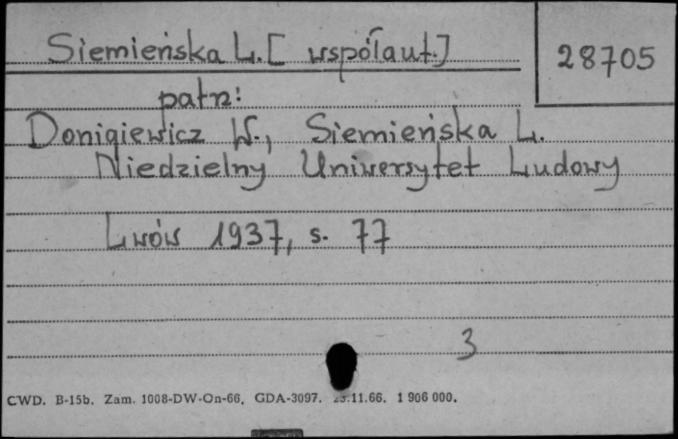 Siemieńska L. [współaut.]
28705
patrz:
Donigiewicz W., Siemieńska L.
Niedzielny Uniwersytet Ludowy
Lwów 1937, s. 77
3
CWD. B-15b. Zam. 1008-DW-On-66. GDA-3097. 11.66. 1 906 000.